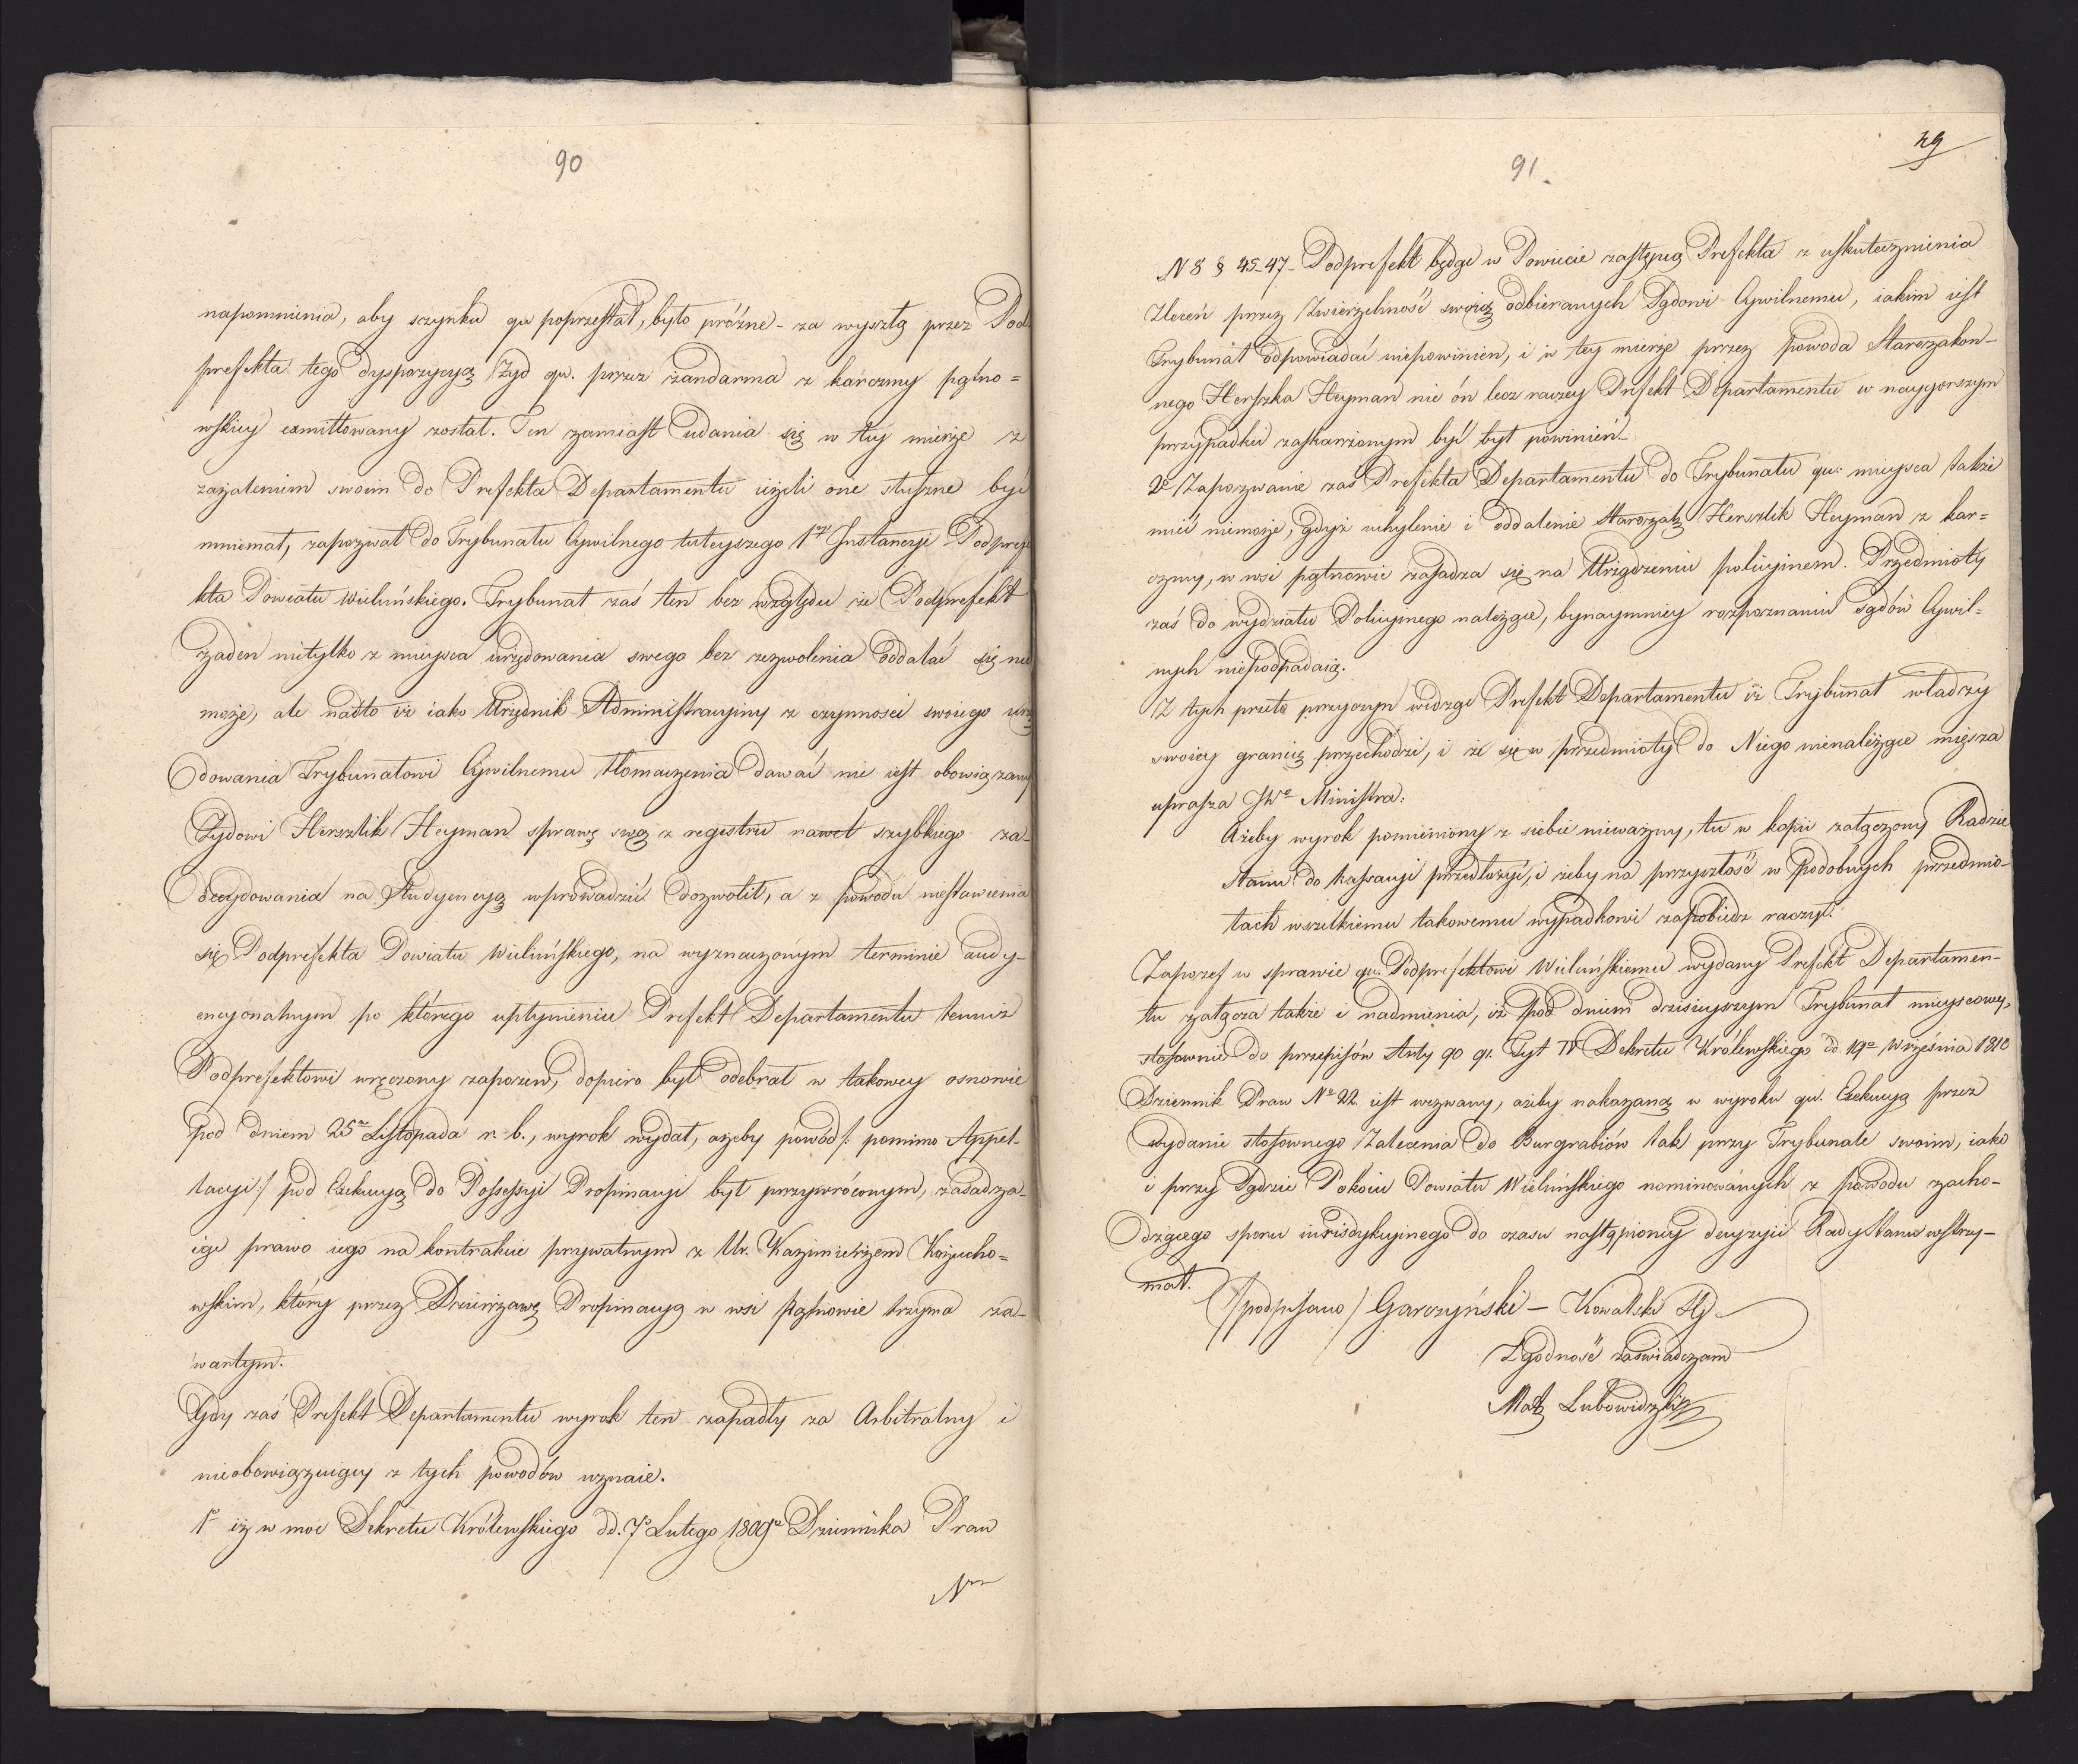 90
napomnienia, aby szynku qu poprzestał, było próżne - za wyszłą przez Pod
prefekta tego dyspozycyą Żyd qu. przez żandarma z karczmy pątno=
wskiey exmittowany został. Ten zamiast udania się w tey mierze z
zażaleniem swoim do Prefekta Departamentu ieżeli one słuszne być
mniemał, zapozwał do Trybunału Cywilnego tuteyszego 1ey Instancyi Podprefe
kta Powiatu Wieluńskiego. Trybunał zaś ten bez względu że Podprefekt
żaden nietylko z mieysca urzędowania swego bez zezwolenia oddalać się nie
może, ale nadto iż iako Urzędnik Administracyiny z czynności swoiego urzę
dowania Trybunałowi Cywilnemu tłomaczenia dawać nie iest obowiązany
Żydowi Herszlik Heyman sprawę swą z regestru nawet szybkiego za-
decydowania na Audyencyą wprowadzić dozwolił, a z powodu niestawienia
się Podprefekta Powiatu Wieluńskiego, na wyznaczonym terminie audy-
encyonalnym po którego upłynieniu Prefekt Departamentu temuż
Podprefektowi wręczony zapozew, dopiero był odebrał w takowey osnowie
pod dniem 25go Listopada r. b., wyrok wydał, ażeby powód /: pomimo Appel-
lacyi :/ pod Exekucyą do Possessyi Propinacyi był przywróconym, zasadza-
iąc prawo iego na kontrakcie prywatnym z Ur. Kazimierzem Kożucho=
wskim, który przez Dzierżawę Propinacyą w wsi Pątnowie trzyma za-
wartym.
Gdy zaś Prefekt Departamentu wyrok ten zapadły za Arbitralny i
nieobowiązuiący z tych powodów uznaie.
1o iż w moc Dekretu Królewskiego dd. 7o Lutego 1809o Dziennika Praw
Nro
49
91.
N 8 § 45-47- Podprefekt będąc w Powiecie zastępcą Prefekta z uskutecznienia
Zleceń przez Zwierzchność swoią odbieranych Sądowi Cywilnemu, iakim iest
Trybunał odpowiadać niepowinien, i w tey mierze przez Powoda Starozakon-
nego Herszka Heyman nie ón lecz raczey Prefekt Departamentu w naygorszym
przypadku zaskarżonym być był powinien-
2o Zapozwanie zaś Prefekta Departamentu do Trybunału qu: mieysca także
mieć niemoże, gdyż uchylenie i oddalenie Starozak Herszlik Heyman z kar=
czmy, w wsi pątnowie zasadza się na Urządzeniu policyinem. Przedmioty
zaś do wydziału Policyinego należące, bynaymniey rozpoznaniu sądów Cywil=
nych niepodpadaią.
Z tych przeto przyczyn widząc Prefekt Departamentu iż Trybunał władzy
swoiey granicę przechodzi, i że się w przedmioty do Niego nienależące mięsza
uprasza JWo Ministra:
Ażeby wyrok pomieniony z siebie nieważny, tu w kopii załączony Radzie
Stanu do Kassacyi przedłożyć, i żeby na przyszłość w podobnych przedmio-
tach wszelkiemu takowemu wypadkowi zapobiedz raczył.
Zapozew w sprawie qu. Podprefektowi Wieluńskiemu wydany Prefekt Departamen-
tu załącza także i nadmienia, iż pod dniem dzisieyszym Trybunał mieyscowy,
stosownie do przepisów Arty 90 91. Tyt IV Dekretu Królewskiego dd 19o Września 1810
Dziennik Praw No 22. iest wezwany, ażeby nakazaną w wyroku qu. Exekucyą przez
wydanie stosownego Zalecenia do Burgrabiów tak przy Trybunale swoim, iako
i przy Sądzie Pokoiu Powiatu Wieluńskiego nominowanych z powodu zacho-
dzącego sporu iurisdykcyinego do czasu nastąpioney decyzyi Rady Stanu wstrzy-
mał.
/podpisano/ Garczyński - Kowalski Sg
Zgodność zaświadczam
Mat Lubowidzki